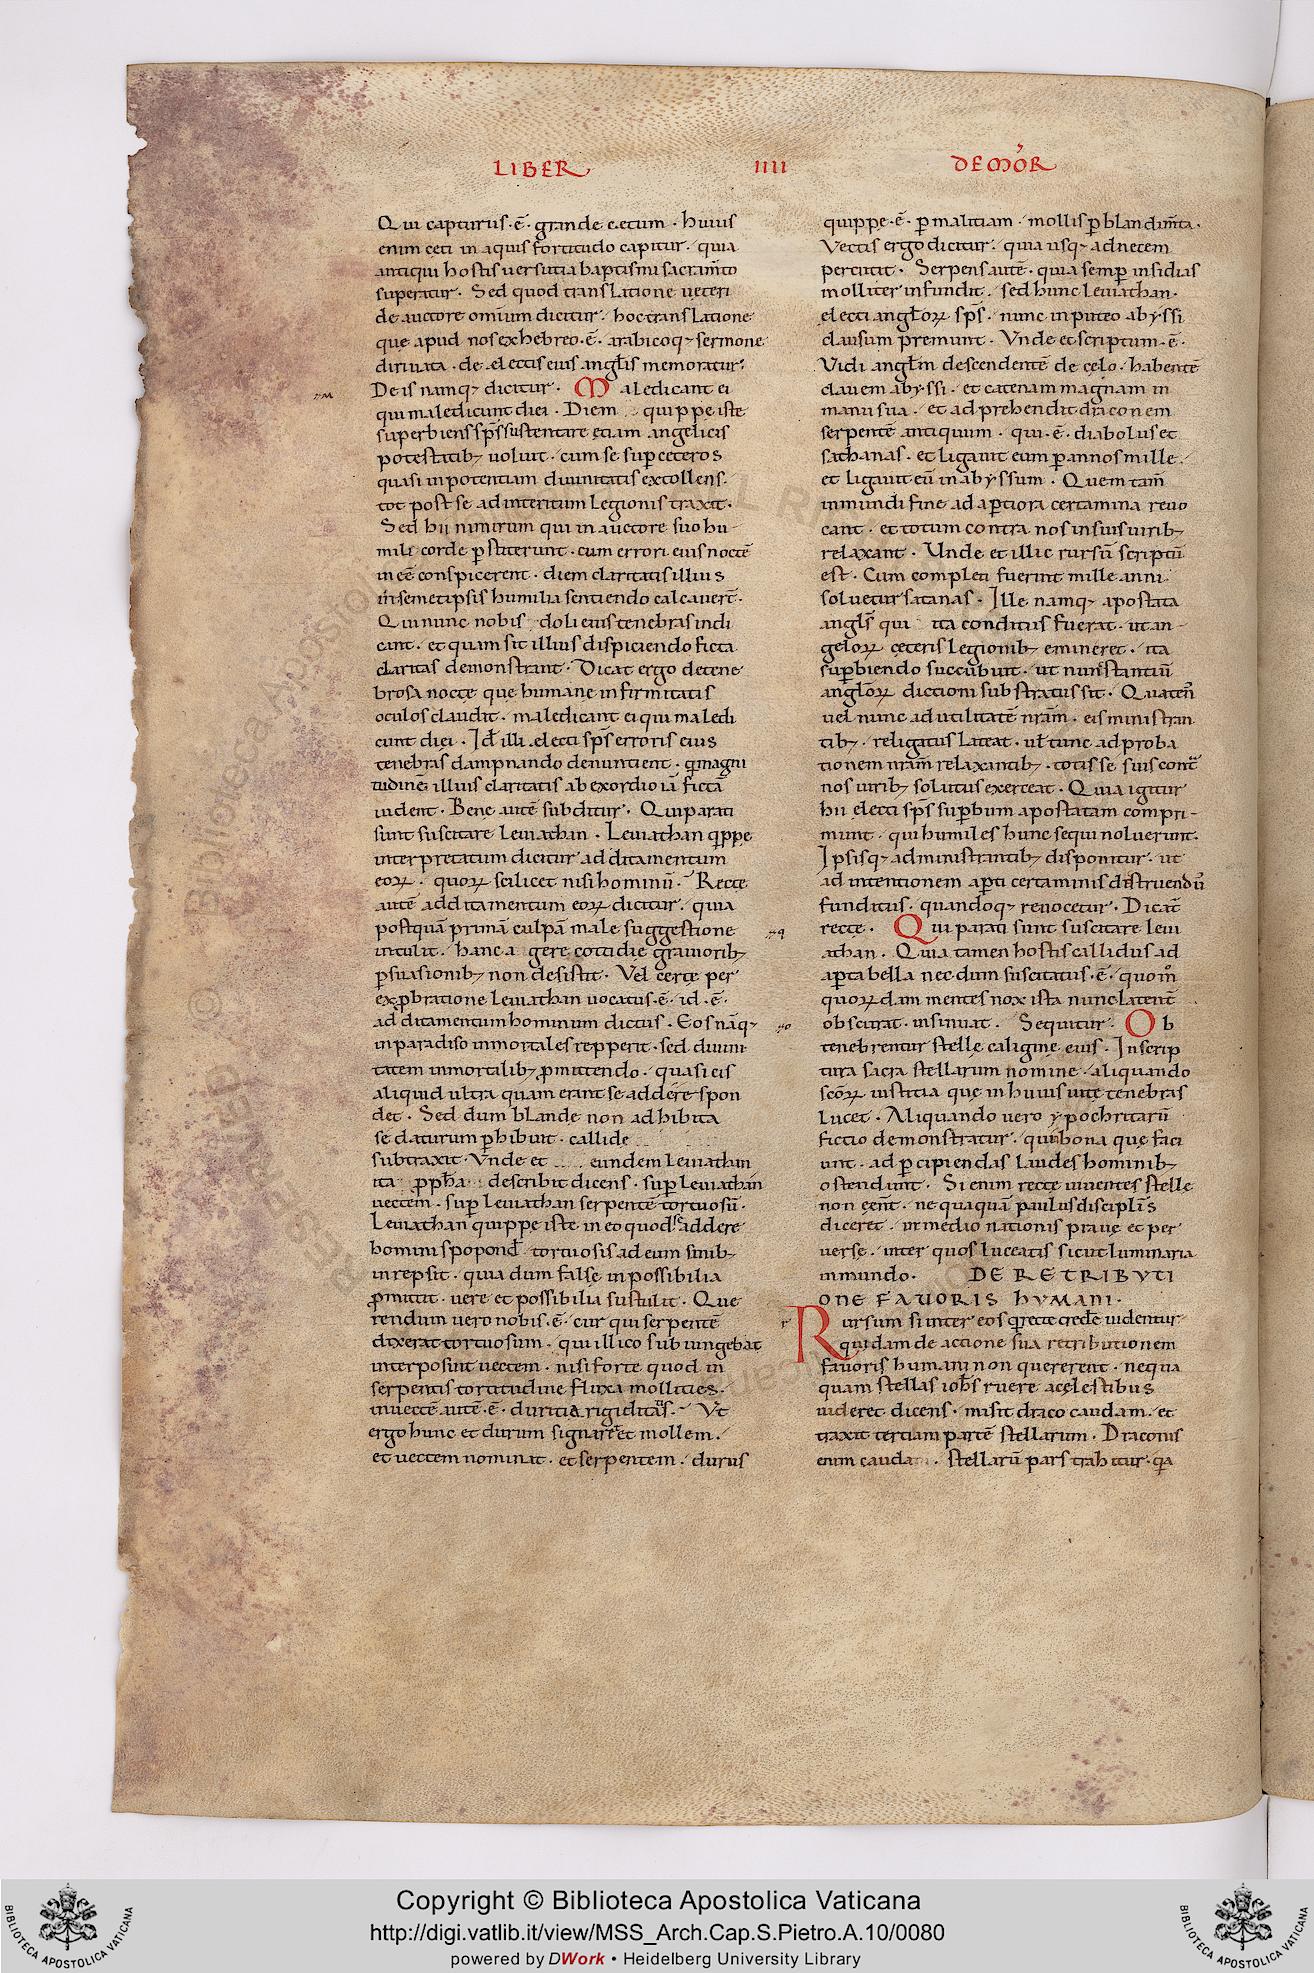 LIBER IIII DE MOR̄
Qui capturus · ē · grande cetum · huius
enim ceti in aquis fortitudo capitur · quia
antiqui hostis uersutia baptismi sacram̄to
superatur · Sed quod translatione ueteri
de auctore omnium dicitur · hoc translatione
que apud nos ex hebreo · ē · arabicoq; sermone
diriuata · de electis eius angl̄is memoratur ·
De is namq; dicitur · Maledicant ei
qui maledicunt diei · Diem quippe iste
superbiens sp̄s sustentare etiam angelicis
potestatib; uoluit · cum se sup ceteros
quasi in potentiam diuinitatis extollens ·
tot post se ad interitum legionis traxit ·
Sed hii nimirum qui in auctore suo hu-
mili corde pstiterunt · cum errori eius noctē
in eē conspicerent · diem claritatis illius
in semetipsis humilia sentiendo calcauer̄t ·
Qui nunc nobis doli eius tenebras indi
cant · et quam sit illius dispiciendo ficta
claritas demonstrant · Dicat ergo de tene
brosa noctę quę humane infirmitatis
oculos claudit · maledicant ei qui maledi
cunt diei · Id ÷ illi electi sp̄s erroris eius
tenebras dampnando denuntient · q magni
tudinē illius claritatis ab exordio iā fictā
uident · Bene autē subditur · Qui parati
sunt suscitare leuiathan · Leuiathan qppe
interpretatum dicitur additamentum
eoꝝ · quoꝝ scilicet nisi hominū · Rectę
autē additamentum eoꝝ dicitur · quia
postquā primā culpā male suggestione
intulit · hanc a gere cottidie grauiorib;
psuasionib; non desistit · Vel certe per
exp̱bratione leuiathan uocatus · ē · id · ē ·
additamentum hominum dictus · Eos nāq;
in paradiso inmortales repperit · sed diuini
tatem inmortalib; pmittendo · quasi eis
aliquid ultra quam erant se addere spon
det · Sed dum blande non adhibita
se daturum phibuit · callide
subtraxit · Vnde et eundem leuiathan
ita pph̄a describit dicens · sup leuiathan
uectem · sup leuiathan serpentē tortuosū ·
Leuiathan quippe iste in eo quod se addere
homini spopond̄ · tortuosis ad eum sinib;
inrepsit · quia dum false inpossibilia
pmittit · uere et possibilia sustulit · Que
rendum uero nobis · ē · cur qui serpentē
dixerat tortuosum · qui illico subiungebat
interposuit uectem · nisi forte quod in
serpentis tortitudine fluxa mollities ·
in uectē autē · ē · duritia rigiditas · Vt
ergo hunc et durum signaret et mollem ·
et uectem nominat · et serpentem · durus
quippe · ē · p malitiam · mollis p blandim̄ta ·
Vectis ergo dicitur · quia usq; ad necem
percutit · Serpens autē · quia semp insidias
molliter infundit · sed hunc leuiathan ·
electi angloꝝ sp̄s · nunc in puteo abyssi
clausum premunt · Vnde et scriptum · ē ·
Vidi angl̄m descendentē de cęlo · habentē
clauem abyssi · et catenam magnam in
manu sua · et adprehendit draconem
serpentē antiquum · qui · ē · diabolus et
sathanas · et ligauit eum p annos mille ·
et ligauit eū in abyssum · Quem tam̄
in mundi fine ad aptiora certamina reuo
cant · et totum contra nos in suis uirib;
relaxant · Unde et illic rursū scriptū
est · Cum completi fuerint mille anni
soluetur satanas · Ille namq; apostata
angl̄s qui ita conditus fuerat · ut an-
geloꝝ ceteris legionib; emineret · ita
supbiendo succubuit · ut nunc stantiū
angloꝝ dictioni substratus sit · Quaten̄
uel nunc ad utilitatē nr̄am · eis ministran
tib; · religatus lateat · ul̄ tunc ad proba
tionem nr̄am relaxantib; · totis se suis cont̄
nos uirib; solutus exerceat · Quia igitur
hii electi sp̄s supbum apostatam compri-
munt · qui humiles hunc sequi noluerunt ·
Ipsisq; administrantib; disponitur · ut
ad intentionem apti certaminis distruendū
funditus · quandoq; reuocetur · Dicat̄
recte · Qui parati sunt suscitare leui
athan · Quia tamen hostis callidus ad
apta bella nec dum suscitatus · ē · quom̄
quoꝝdam mentes nox ista nunc latent̄
obscurat · insinuat · Sequitur · Ob
tenebrentur stelle caligine eius · In scrip
tura sacra stellarum nomine · aliquando
sc̄oꝝ iustitia quę in huius uite tenebras
lucet · Aliquando uero ypochritarū
fictio demonstratur · qui bona quę faci
unt · ad pcipiendas laudes hominib;
ostendunt · Si enim recte uiuentes stelle
non eēnt · ne quaquā paulus discipl̄is
diceret · in medio nationis praue et per
uerse · inter quos lucetis sicut luminaria
in mundo · DE RETRIBVTI
ONE FAVORIS HVMANI ·
Rursum si inter eos q recte crede uidentur
quidam de actione sua retributionem
fauoris humani non quererent · nequa
quam stellas ioh̄s ruere a celestibus
uideret dicens · misit draco caudam · et
traxit tertiam partē stellarum · Draconis
enim cauda · stellarū pars trahitur · qa